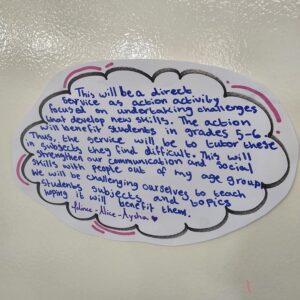 This will be a direct
service as action activity
focused on undertaking challenges
that develop new skills. The action
will benefit students in grades 5-6.
Thus, the service will be to tutor these
in subjects they find difficult. This will
strengthen our communication and social
skills with people out of my age group.
We will be challenging ourselves to teach
students subjects and topics
hoping it will benefit them.
-Alice-Aysha